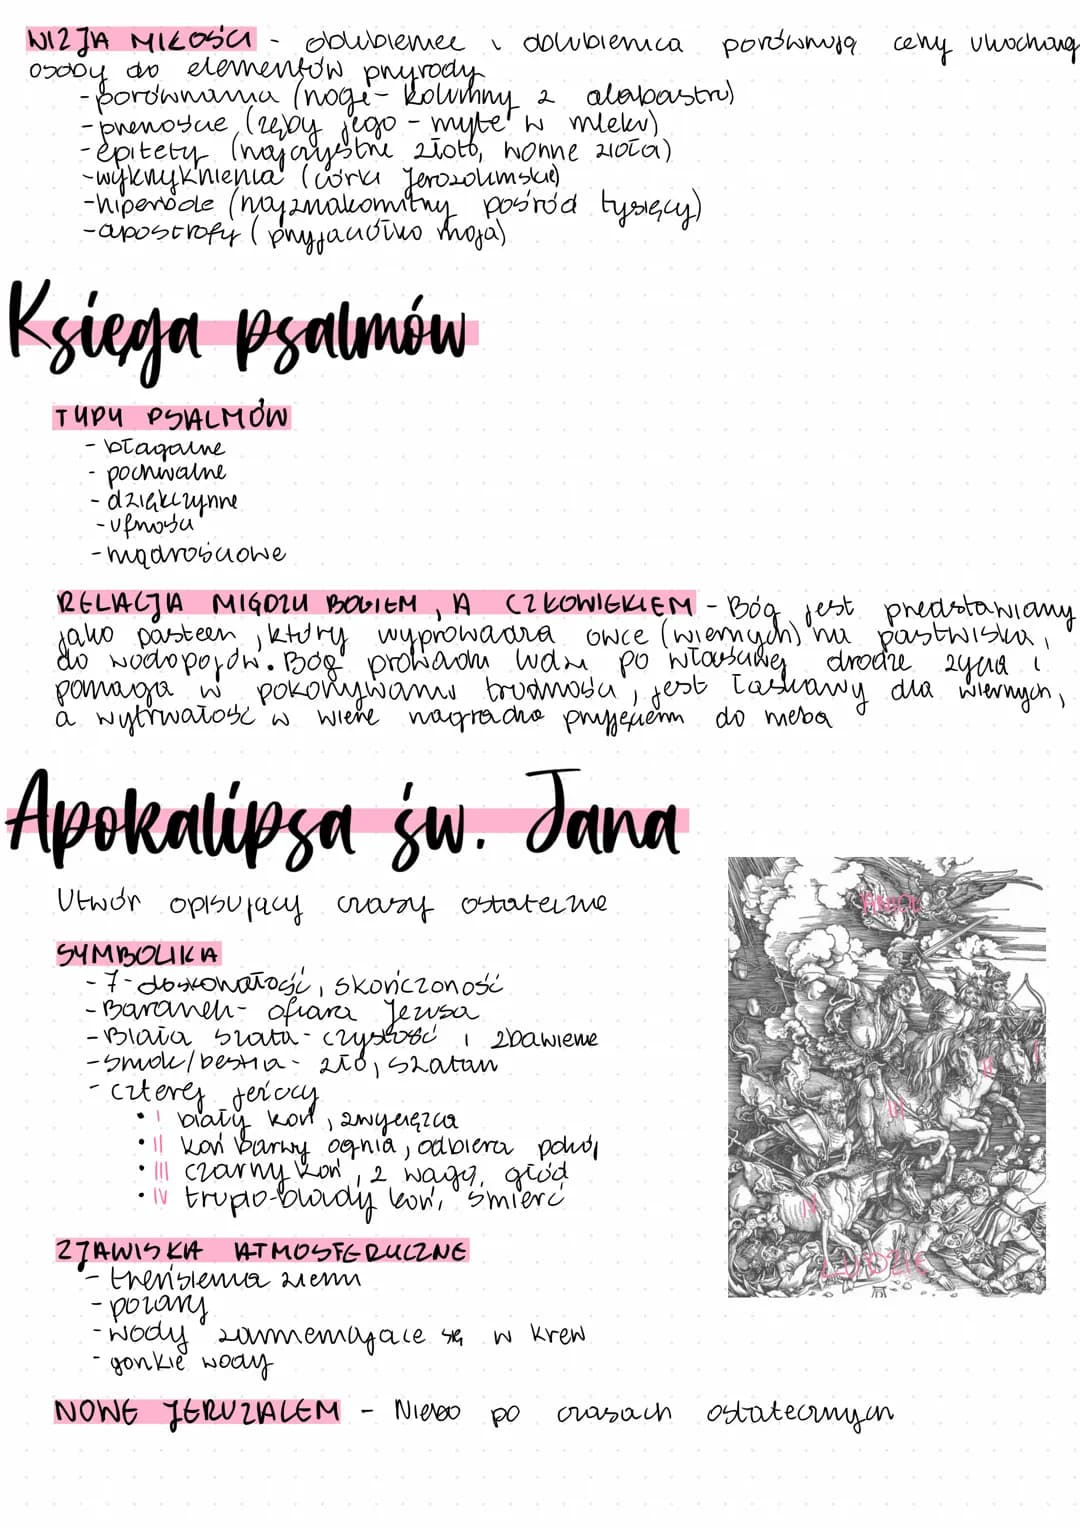 WIZJA MIŁOŚCI - oblubieniec i oblubienica porównują cechy ukochanej
osoby do elementów przyrody
- porównania (nogi - kolumny z alabastru)
- przenośnie (zęby jego - myte w mleku)
- epitety (najczystsze złoto, wonne zioła)
- wykrzyknienia (córki Jerozolimskie)
- hiperbole (najznakomitszy pośród tysięcy)
- apostrofy (przyjaciółko moja)
Księga psalmów
TYPY PSALMÓW
- błagalne
- pochwalne
- dziękczynne
- ufności
- mądrościowe
RELACJA MIĘDZY BOGIEM, A CZŁOWIEKIEM - Bóg jest przedstawiany
jako pasterz, który wyprowadza owce (wiernych) na pastwiska,
do wodopojów. Bóg prowadzi ludzi po właściwej drodze życia i
pomaga w pokonywaniu trudności, jest łaskawy dla wiernych,
a wytrwałość w wierze nagradza przyjęciem do nieba
Apokalipsa św. Jana
Utwór opisujący czasy ostateczne
SYMBOLIKA
- 7 - doskonałość, skończoność
- Baranek - ofiara Jezusa
- Biała szata - czystość i zbawienie
- Smok/bestia - zło, szatan
- czterej jeźdźcy
• I biały koń, zwycięzca
• II koń barwy ognia, odbiera pokój
• III czarny koń, z wagą, głód
• IV trupio-blady koń, śmierć
ANIOŁ
I
II
III
IV
LUDZIE
ZJAWISKA ATMOSFERYCZNE
- trzęsienia ziemi
- pożary
- wody zamieniające się w krew
- gorzkie wody
NOWE JERUZALEM - Niebo po czasach ostatecznych